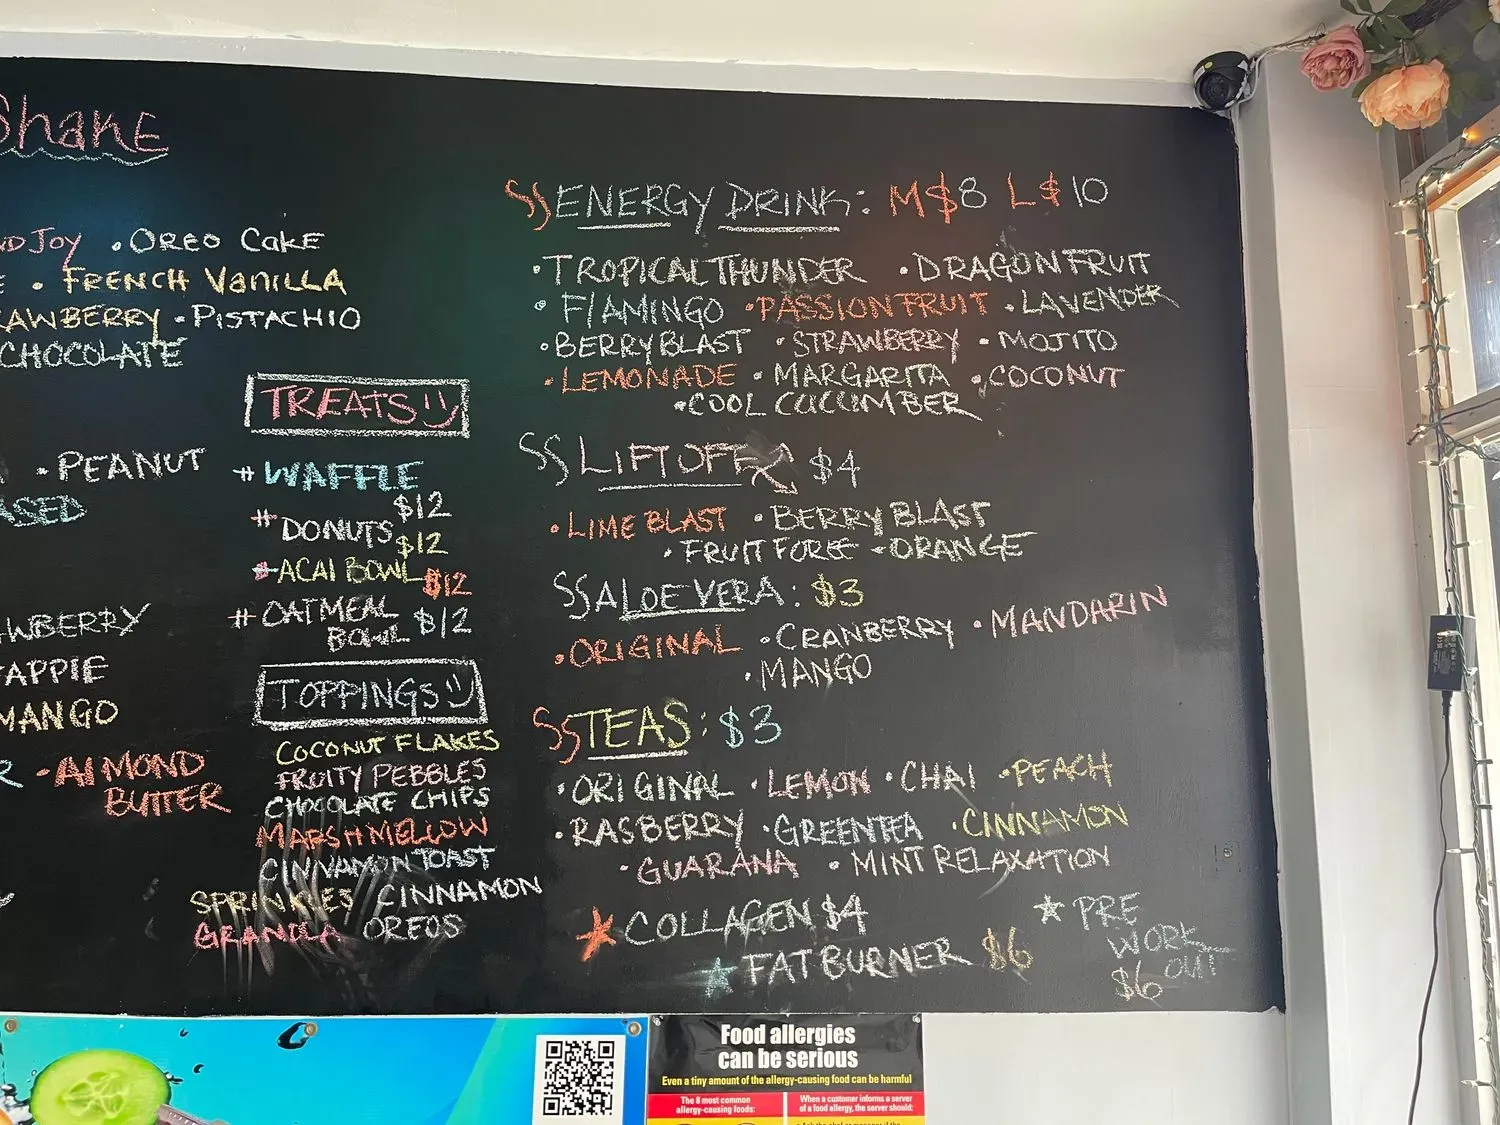 Shake
Joy • OREO CAKE
• FRENCH VANILLA
• PISTACHIO
CHOCOLATE
• PEANUT
MANGO
• ALMOND
BUTTER
TREATS
# WAFFLE
$12
# DONUTS
$12
# ACAI BOWL
$12
# OATMEAL
BOWL $12
TOPPINGS
COCONUT FLAKES
FRUITY PEBBLES
CHOCOLATE CHIPS
MARSHMELLOW
CINNAMON TOAST
SPRINKLES CINNAMON
GRANOLA OREOS
ENERGY DRINK: M$8 L$10
• TROPICAL THUNDER • DRAGONFRUIT
• FLAMINGO • PASSIONFRUIT • LAVENDER
• BERRY BLAST • STRAWBERRY • MOJITO
• LEMONADE • MARGARITA • COCONUT
• COOL CUCUMBER
LIFTOFF $4
• LIME BLAST • BERRY BLAST
• FRUIT FORCE • ORANGE
ALOE VERA: $3
• ORIGINAL • CRANBERRY • MANDARIN
• MANGO
TEAS: $3
• ORIGINAL • LEMON • CHAI • PEACH
• RASBERRY • GREENTEA • CINNAMON
• GUARANA • MINT RELAXATION
COLLAGEN $4
FAT BURNER $6
PRE
WORK
OUT
$6
Food allergies
can be serious
Even a tiny amount of the allergy-causing food can be harmful
The 8 most common
allergy-causing foods:
When a customer informs a server
of a food allergy, the server should: